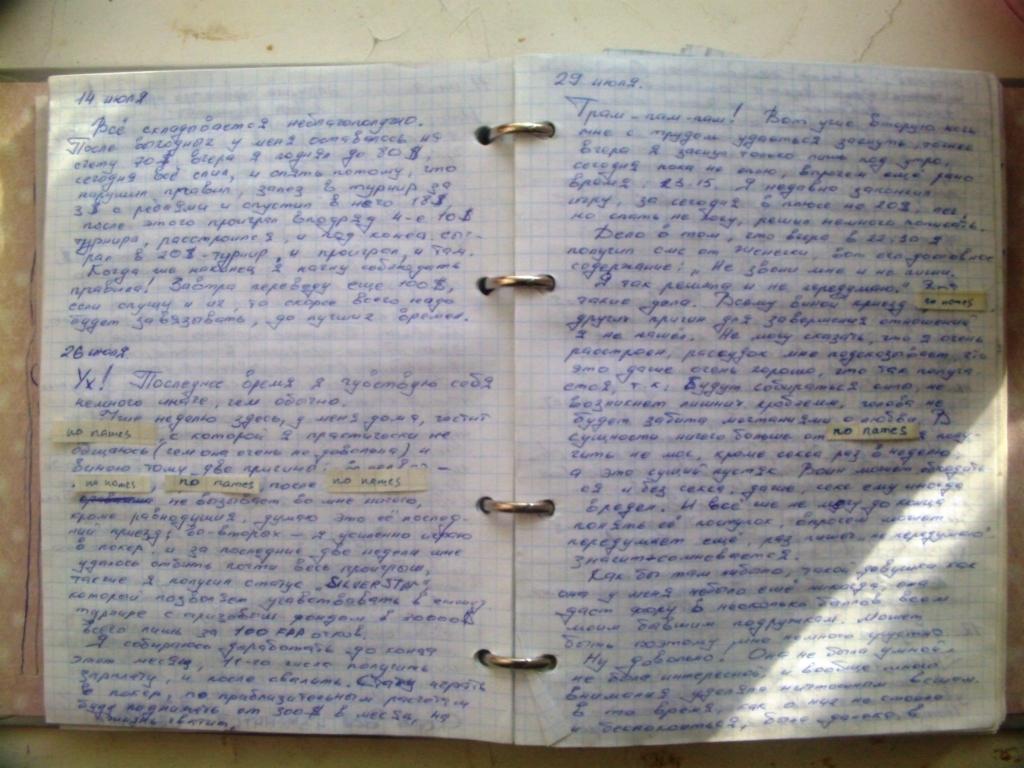 14 июля
Всё складывается неблагополучно.
После выходных у меня оставалось на
счету 70$ вчера я поднял до 80$,
сегодня всё слил, и опять потому, что
нарушил правил, залез в турнир за
3$ с ребаями и опустил в него 18$,
после этого проиграл подряд 4-е 10$
турнира, расстроился, и под конец сыг-
рал в 20$-турнир, и проиграл и там.
Когда же наконец я начну соблюдать
правила! Завтра переведу еще 100$,
если спущу и их, то скорее всего надо
будет завязывать, до лучших времен.
26 июля
Ух! Последнее время я чувствую себя
немного иначе, чем обычно.
неделю здесь, у меня дома, гостит
no names , с которой я практически не
общаюсь (чем она очень недовольна) и
виною тому две причины:
no names no names после no names
не вызывает во мне ничего,
кроме равнодушия, думаю это её послед-
ний приезд; во-вторых – я усиленно играю
в покер, и за последние две недели мне
удалось отбить почти весь проигрыш,
также я получил статус "SILVERSTAR",
который позволяет участвовать в
турнире с призовым фондом в $
всего лишь за 100 FPP очков.
Я собираюсь доработать до конца
этот месяц, числа получить
зарплату, и после свалить. Стану играть
в покер, по приблизительным расчетам
буду поднимать от 300$ в месяц, на
жизнь хватит.
29 июля.
Трам-пам-пам! Вот уже вторую ночь
мне с трудом удаётся заснуть, точнее
вчера я заснул только лишь под утро,
сегодня пока не сплю, впрочем ещё рано
время: 23.15. Я недавно закончил
игру, за сегодня в плюсе на 20$,
но спать не хочу, решил немного пописать.
Дело в том, что вчера в 22:30 я
получил смс от Женечки, вот его дословное
содержание: „Не звони мне и не пиши.
Я так решила и не передумаю."
такие дела. Всему виной приезд no names
других причин для завершения отношений
я не нашёл. Не могу сказать, что я очень
расстроен, рассудок мне подсказывает, что
это даже очень хорошо, что так получа-
ется, т.к. будут собираться
возникнет лишних проблем, голова не
будет забита мечтаниями о любви. В
сущности ничего больше от no names я полу-
чить не мог, кроме секса раз в неделю,
а это сущий пустяк. Воин может обходить-
ся и без секса, даже, секс ему иногда
вреден. И всё же не могу до конца
понять её поступок, впрочем может
передумает ещё, раз пишет „не передумаю"
значит сомневается.
Как бы там небыло, такой девушки как
она у меня небыло ещё никогда, она
даст фору в несколько баллов всем
моим бывшим подружкам. Может
быть поэтому мне немного грустно.
Ну довольно! Она не была умной,
не была интересной и вообще много
внимания уделяла ничтожным вещам.
в то время, как о них не стоило
и беспокоиться, была далека в